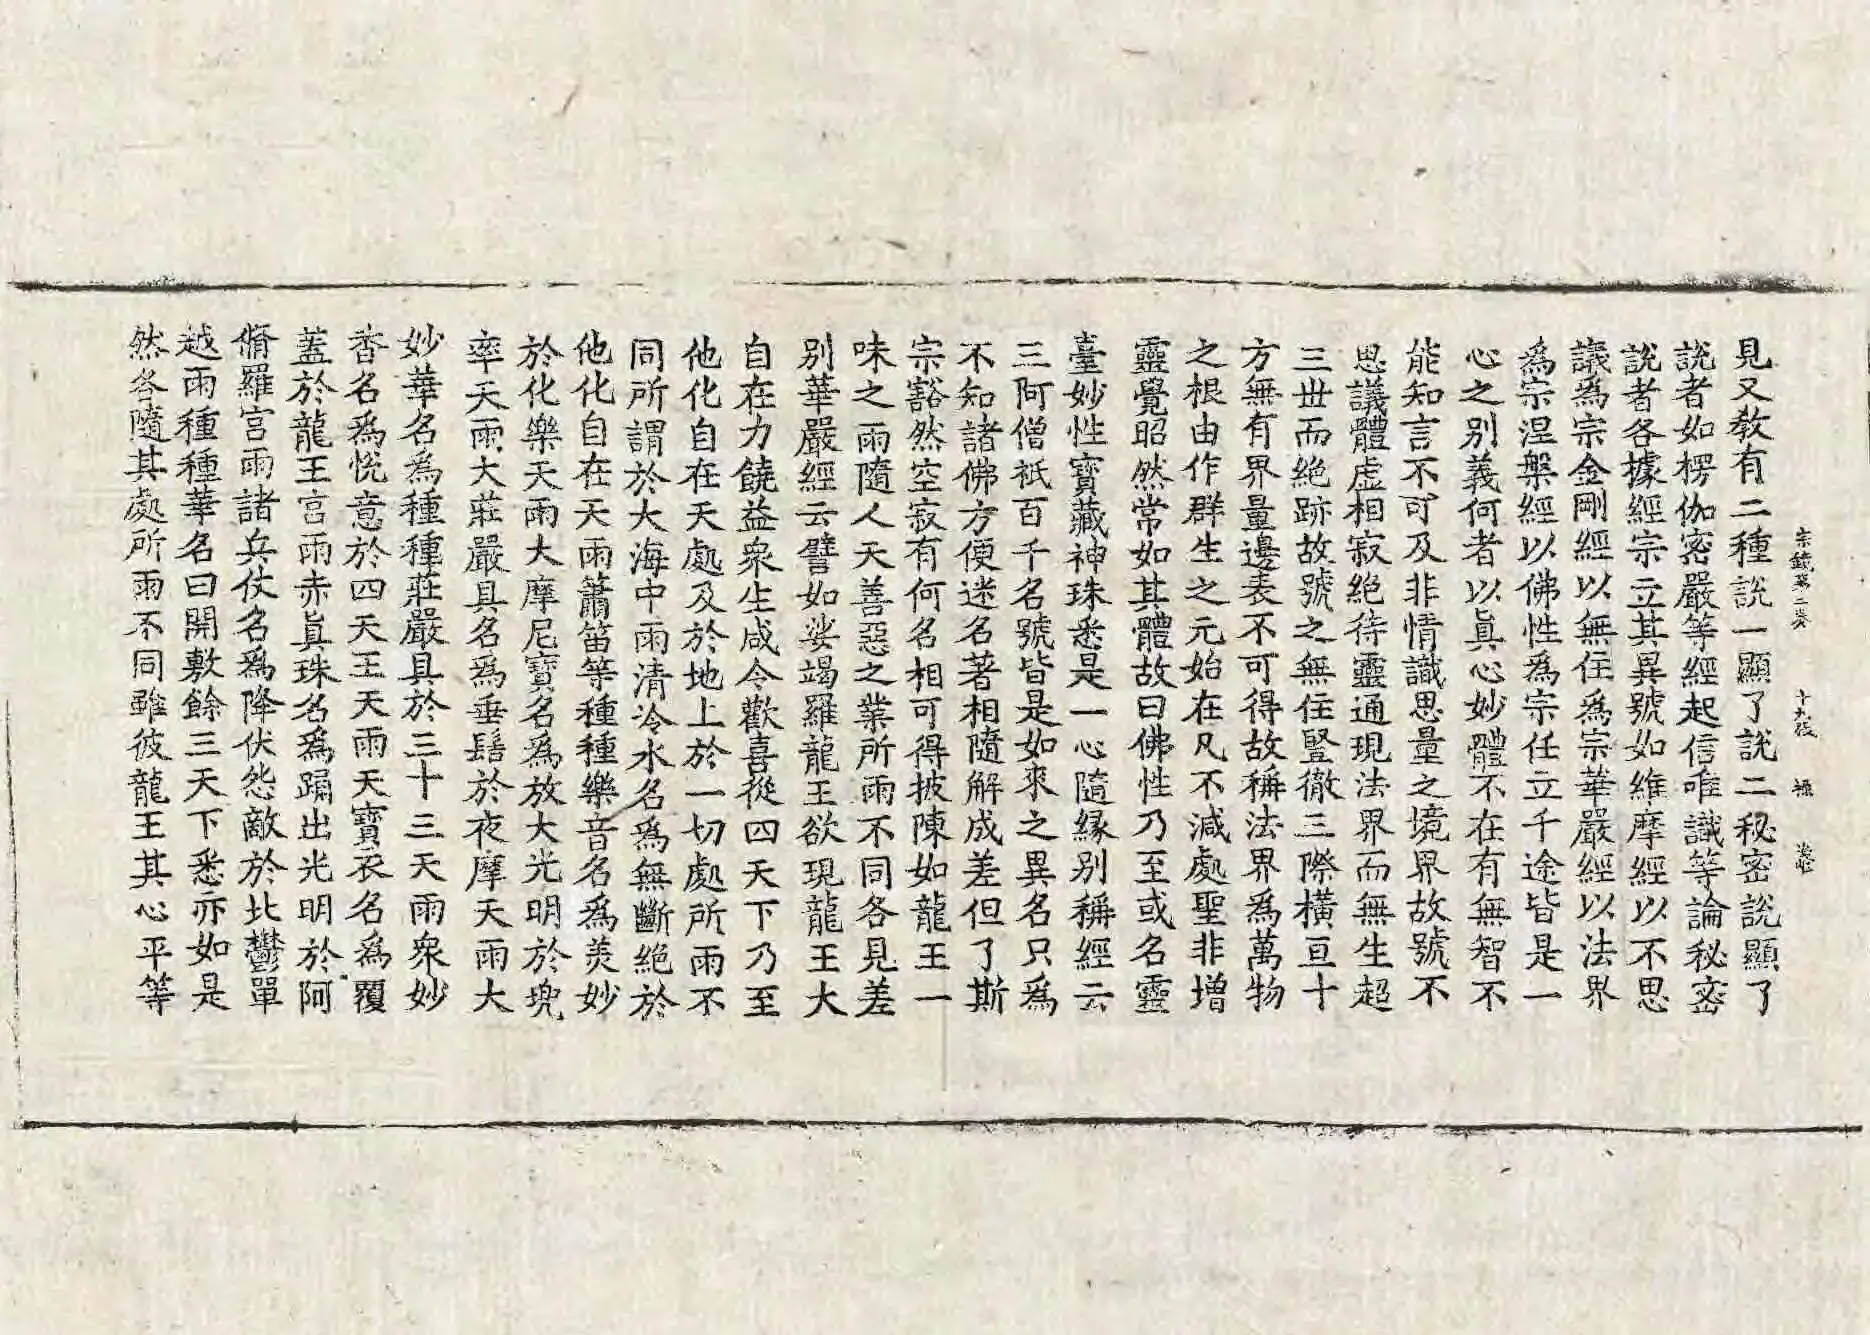 宗鏡第二卷 十九張
見又教有二種說一顯了說二秘密說顯了
說者如楞伽密嚴等經起信唯識等論秘密
說者各據經宗立其異號如維摩經以不思
議爲宗金剛經以無住爲宗華嚴經以法界
爲宗涅槃經以佛性爲宗任立千途皆是一
心之別義何者以眞心妙體不在有無智不
能知言不可及非情識思量之境界故號不
思議體虛相寂絕待靈通現法界而無生超
三世而絕跡故號之無住豎徹三際橫亘十
方無有界量邊表不可得故稱法界爲萬物
之根由作群生之元始在凡不減處聖非增
靈覺昭然常如其體故曰佛性乃至或名靈
臺妙性寶藏神珠悉是一心隨緣別稱經云
三阿僧祇百千名號皆是如來之異名只爲
不知諸佛方便迷名著相隨解成差但了斯
宗豁然空寂有何名相可得披陳如龍王一
味之雨隨人天善惡之業所雨不同各見差
別華嚴經云譬如娑竭羅龍王欲現龍王大
自在力饒益衆生咸令歡喜從四天下乃至
他化自在天處及於地上於一切處所雨不
同所謂於大海中雨清冷水名爲無斷絕於
他化自在天雨簫笛等種種樂音名爲美妙
於化樂天雨大摩尼寶名爲放大光明於兜
率天雨大莊嚴具名爲垂髻於夜摩天雨大
妙華名爲種種莊嚴具於三十三天雨衆妙
香名爲悅意於四天王天雨天寶衣名爲覆
蓋於龍王宮雨赤眞珠名爲踊出光明於阿
脩羅宮雨諸兵仗名爲降伏怨敵於北鬱單
越雨種種華名曰開敷餘三天下悉亦如是
然各隨其處所雨不同雖彼龍王其心平等